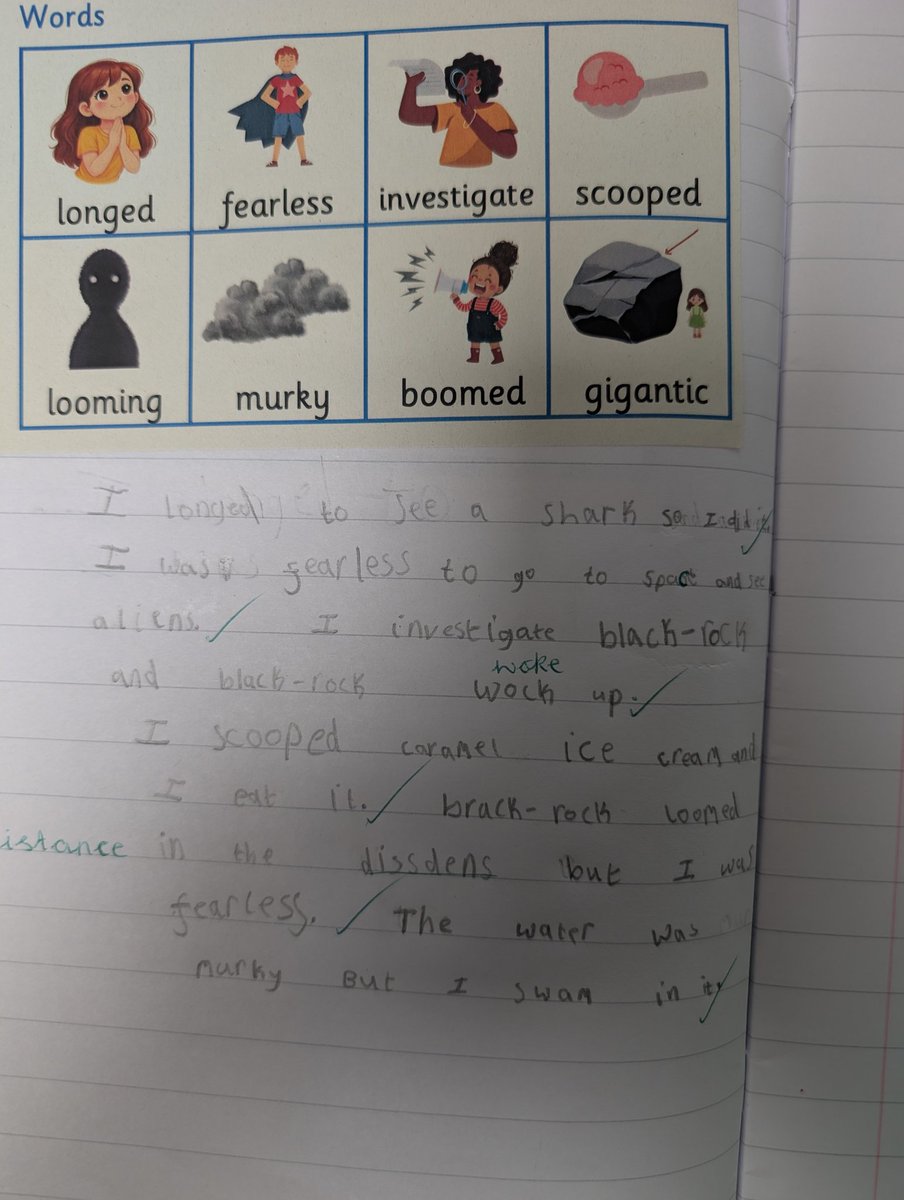 Words
longed fearless investigate scooped
looming murky boomed gigantic
I longed to see a shark so I did
I was fearless to go to space and see
aliens. I investigate black-rock
woke
and black-rock wock up.
I scooped caramel ice cream and
I eat it. brack-rock loomed
istance in the dissdens but I was
fearless. The water was
murky But I swam in it